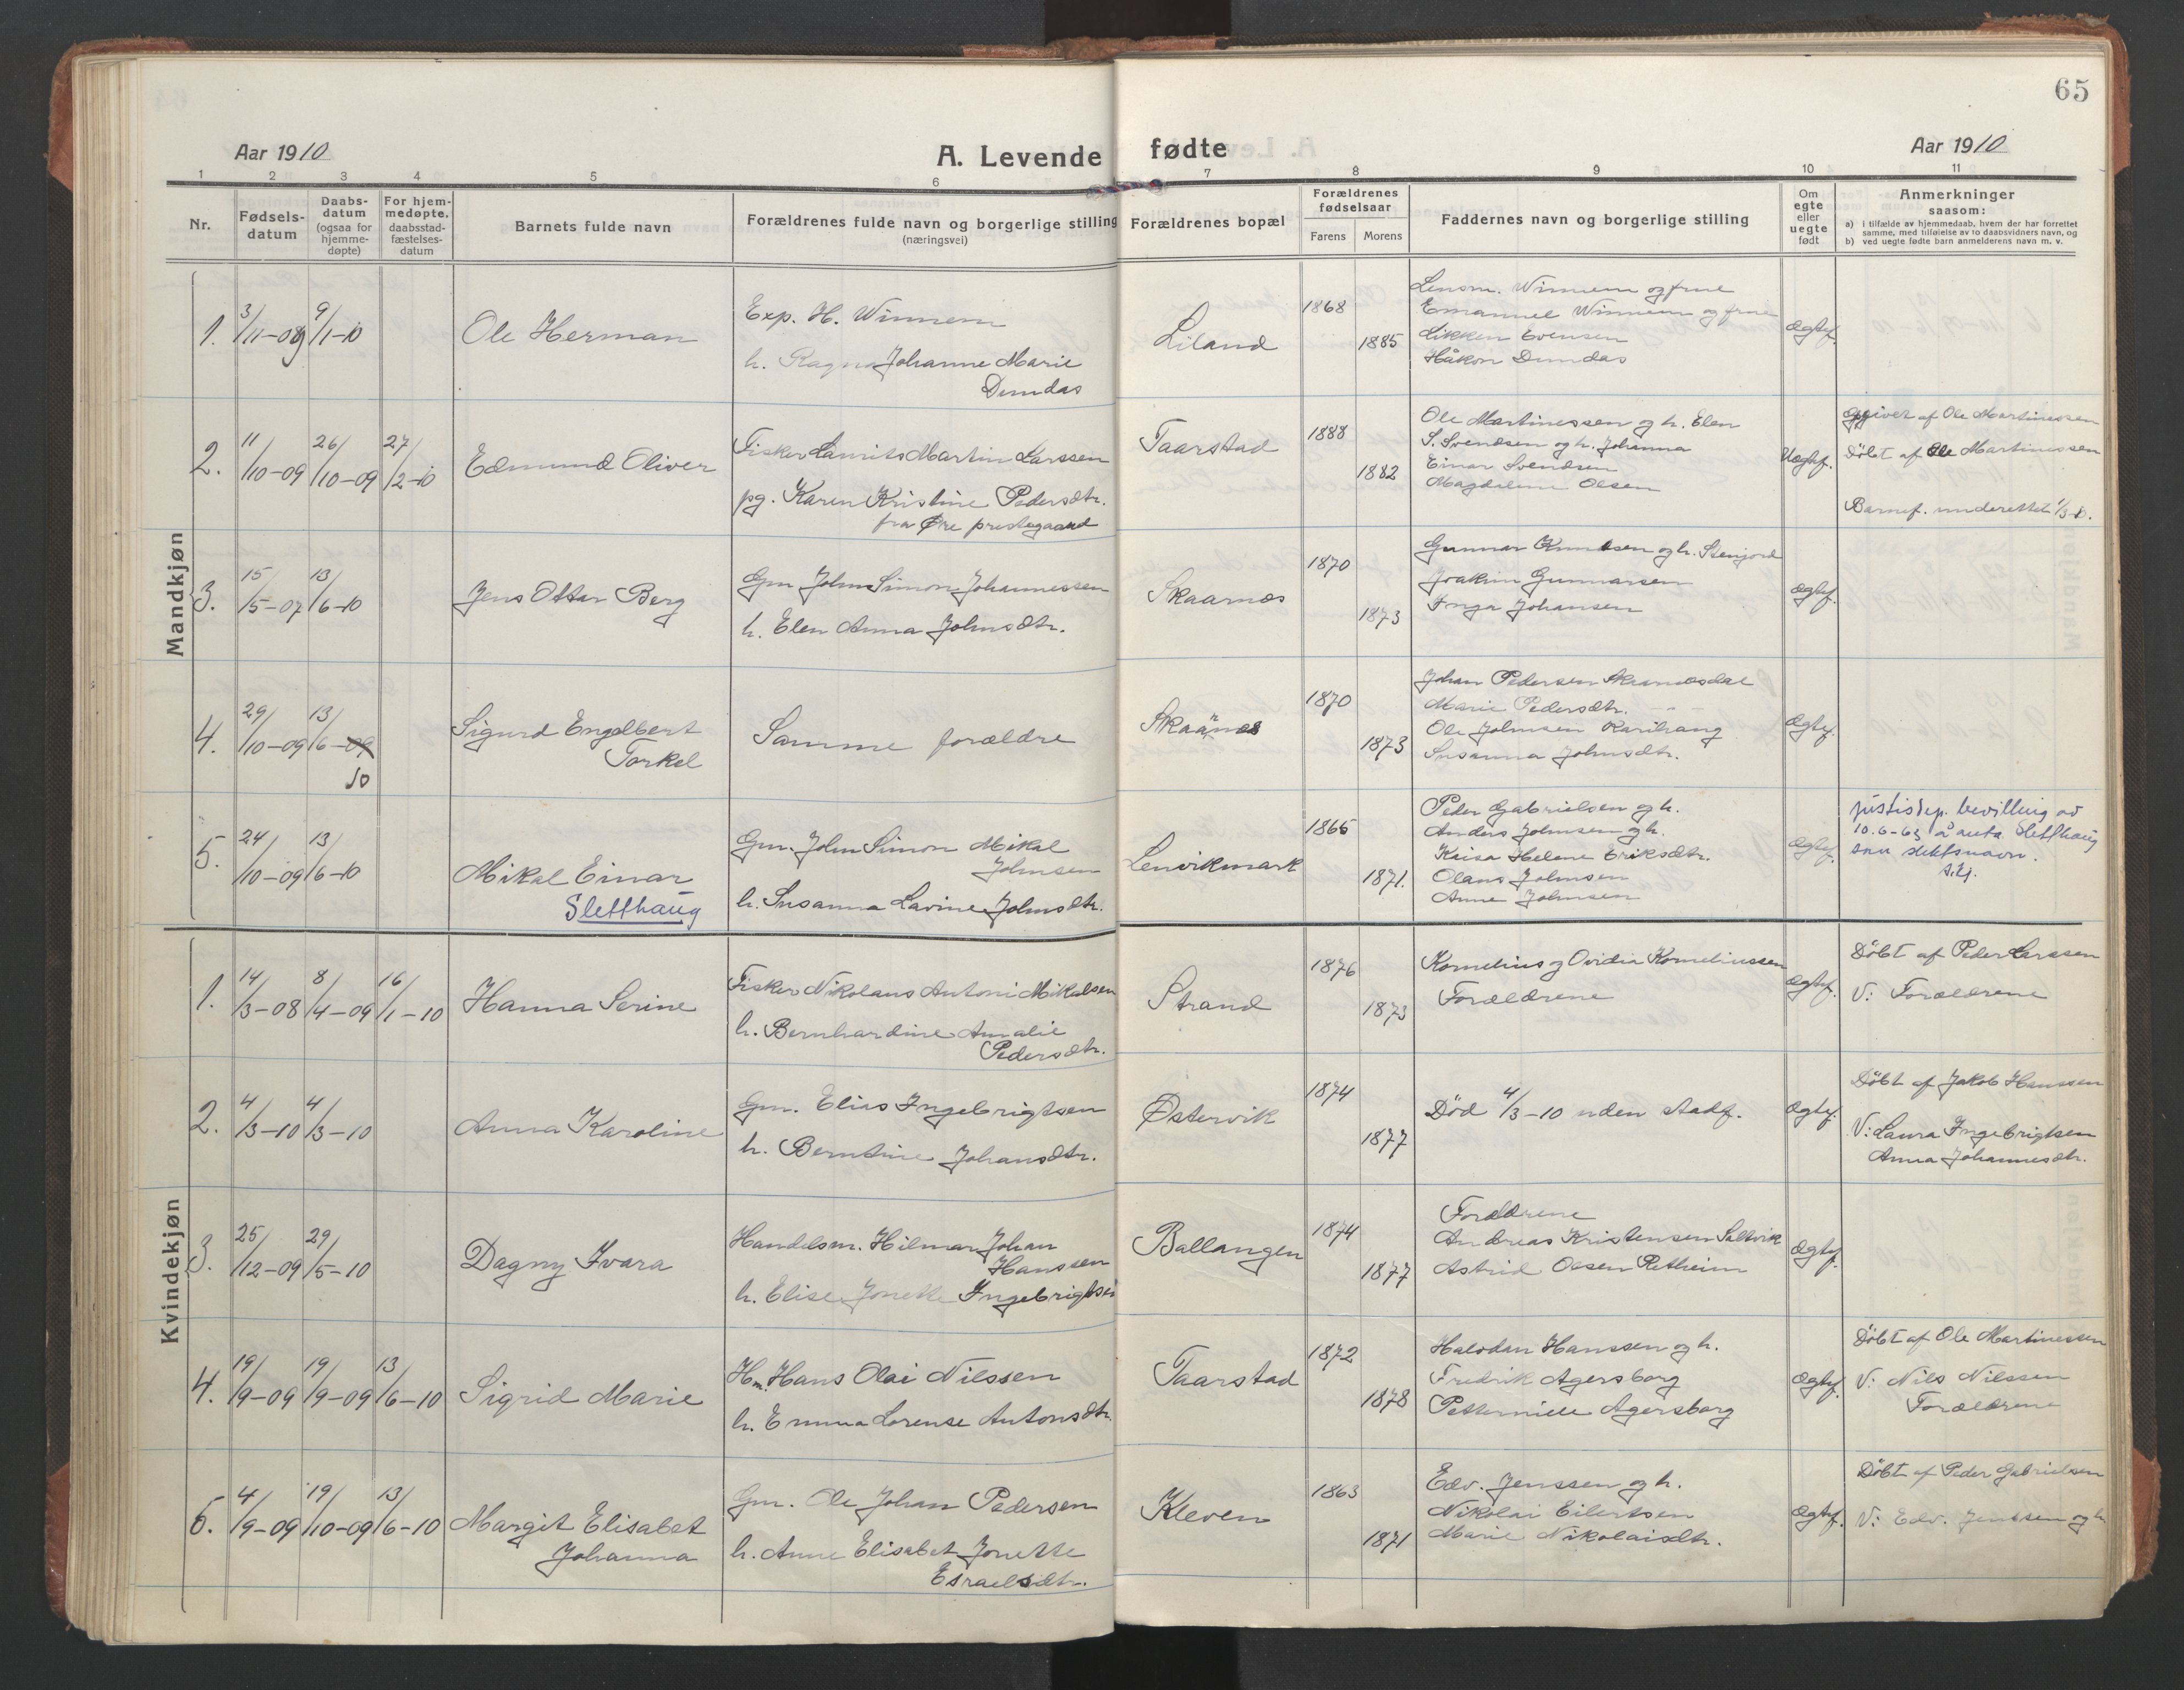 65
Aar 1910
A. Levende fødte
Aar 1910
1 2 3 4 5 6 7 8 9 10 11
Nr.
Fødsels-
datum
Daabs-
datum
(ogsaa for
hjemme-
døpte)
For hjem-
medøpte.
daabsstad-
fæstelses-
datum
Barnets fulde navn
Forældrenes fulde navn og borgerlige stilling
(næringsvei)
Forældrenes bopæl
Forældrenes
fødselsaar
Farens Morens
Faddernes navn og borgerlige stilling
Om
egte
eller
uegte
født
Anmerkninger
saasom:
a) i tilfælde av hjemmedaab, hvem der har forrettet
samme, med tilføielse av to daabsvidners navn, og
b) ved uegte fødte barn anmelderens navn m. v.
Mandkjøn
1. 3/11-09 9/1-10
Ole Herman
Exp. H. Winnem
h. Ragna Johanne Marie
Dundas
Liland
1868
1885
Lensm. Winnem og frue
Emanuel Winnem og frue
Likken Evensen
Håkon Dundas
Ægtef.
2. 11/10-09 26/10-09 27/2-10
Edmund Oliver
Fisker Laurits Martin Larssen
pg. Karen Kristine Pedersdtr.
fra Øre prestegaard
Taarstad
1888
1882
Ole Martinussen og h. Elen
S. Svendsen og h. Johanna
Einar Svendsen
Magdalene Olsen
Uegtef.
Opgiver af Ole Martinussen
Döbt af Ole Martinussen
Barnef. underettet 1/3-10.
3. 15/5-07 13/6-10
Jens Ottar Berg
Gm John Simon Johannessen
h. Elen Anna Johnsdtr.
Skaarnes
1870
1873
Gunnar Knudsen og h. Stenjord
Joakim Gunnarsen
Inga Johansen
Ægtef.
4. 29/10-09 13/6-09
10
Sigurd Engelbert
Torkel
Samme forældre
Skaarnes
1870
1873
Johan Pedersen Skaanesdal
Marie Pedersdtr. - -
Ole Johnsen Karihaug
Susanna Johnsdtr.
Ægtef.
5. 24/10-09 13/6-10
Mikal Einar
Sletthaug
Gm. John Simon Mikal
Johnsen
h. Susanna Lavine Johnsdtr.
Lenvikmark
1866
1871.
Peder Gabrielsen og h.
Anders Johnsen og h.
Kaisa Helene Eriksdtr.
Olaus Johnsen
Anne Johnsen
Ægtef.
justisdep. bevilling av
10.6-63 å anta Sletthaug
som slektsnavn.
Kvindekjøn
1. 14/3-08 8/4-09 16/1-10
Hanna Serine
Fisker Nikolaus Antoni Mikalsen
h. Bernhardine Amalie
Pedersdtr.
Strand
1876
1873
Kornelius og Ovidia Korneliussen
Forældrene
Ægtef.
Döbt af Peder Larssen
V: Forældrene
2. 4/3-10 4/3-10
Anna Karoline
Gm. Elias Ingebrigtsen
h. Berntine Johansdtr.
Østervik
1874
1877
Død 4/3-10 uden stadf.
Ægtef.
Döbt af Jakob Hanssen
V: Laura Ingebrigtsen
Anna Johannesdtr.
3. 25/12-09 29/5-10
Dagny Ivara
Handelsm. Hilmar Johan
Hanssen
h. Elise Jonette Ingebrigtsen
Ballangen
1874
1877
Forældrene
Andreas Kristensen Saltvik
Astrid Olsen Retheim
Ægtef.
4. 19/9-09 19/9-09 13/6-10
Sigrid Marie
Hm. Hans Olai Nilssen
h. Emma Lorense Antonsdtr.
Taarstad
1872
1878
Halvdan Hanssen og h.
Fredrik Agersborg
Petternille Agersborg
Ægtef.
Döbt af Ole Martinussen
V: Nils Nilssen
Forældrene
5. 4/9-09 19/10-09 13/6-10
Margit Elisabet
Johanna
Gm. Ole Johan Pedersen
h. Anne Elisabet Jonette
Esraelsdtr.
Kleven
1863
1871
Edv. Jenssen og h.
Nikolai Eilertsen
Marie Nikolaisdtr.
Ægtef.
Döbt af Peder Gabrielsen
V: Edv. Jenssen og h